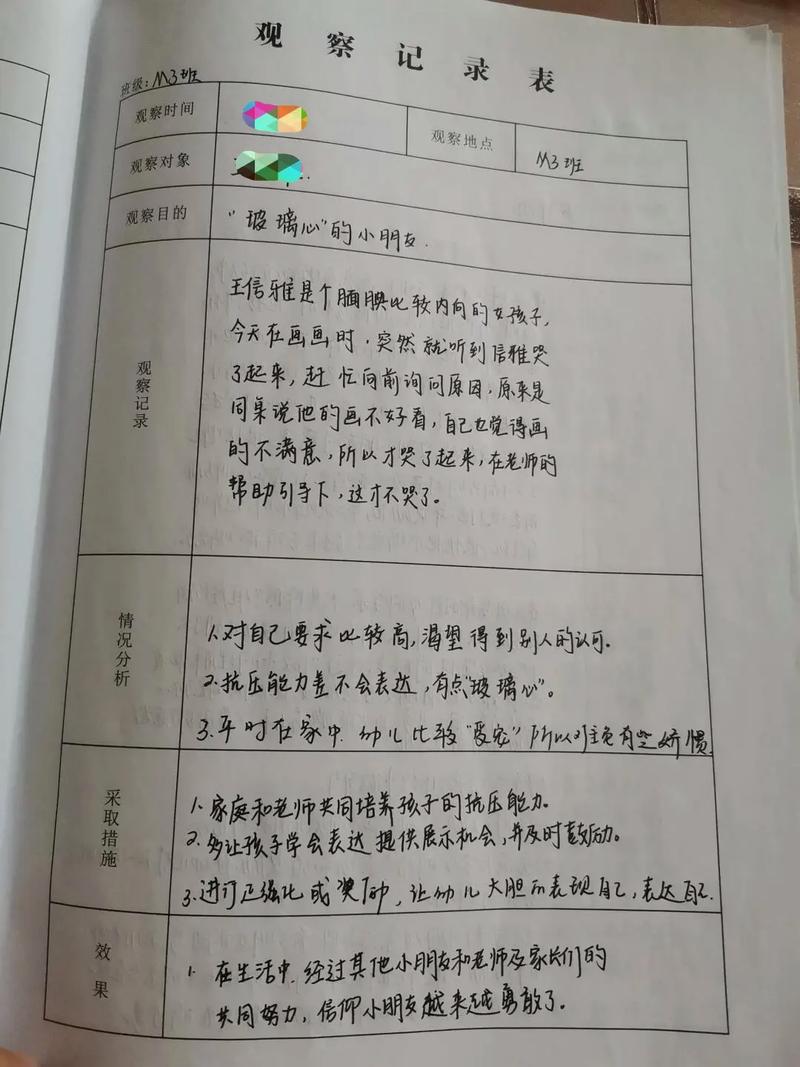 观察记录表
班级：M3班
观察时间
观察地点
M3班
观察对象
观察目的
“玻璃心”的小朋友.
观察记录
王信雅是个腼腆比较内向的女孩子,
今天在画画时，突然就听到信雅哭
了起来，赶忙向前询问原因，原来是
同桌说他的画不好看，自己也觉得画
的不满意，所以才哭了起来，在老师的
帮助引导下，这才不哭了。
情况分析
1.对自己要求比较高，渴望得到别人的认可.
2.抗压能力差不会表达，有点“玻璃心”。
3.平时在家中.幼儿比较“受宠”所以难免有些娇惯.
采取措施
1.家庭和老师共同培养孩子的抗压能力。
2.多让孩子学会表达提供展示机会，并及时鼓励。
3.进行正强化或奖励，让幼儿大胆的表现自己，表达自己.
效果
1.在生活中.经过其他小朋友和老师及家长们的
共同努力，信仰小朋友越来越勇敢了。